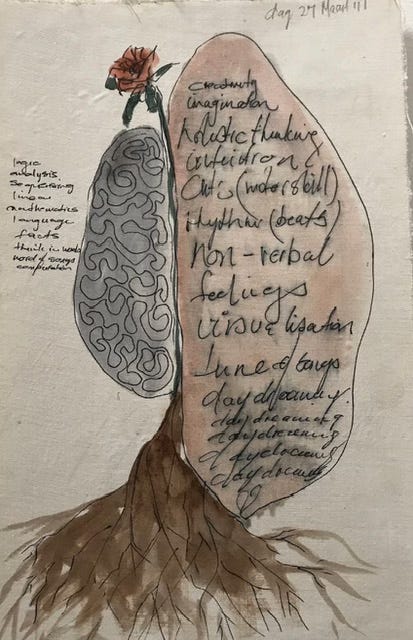 27 Maart
logic
analysis
sequencing
linear
mathematics
language
facts
think in words
word of songs
computation
creativity
imagination
holistic thinking
intuition
Arts (motor skill)
rhythm (beats)
non-verbal
feelings
visualisation
tune of songs
daydreaming
daydreaming
daydreaming
daydreaming
daydreaming